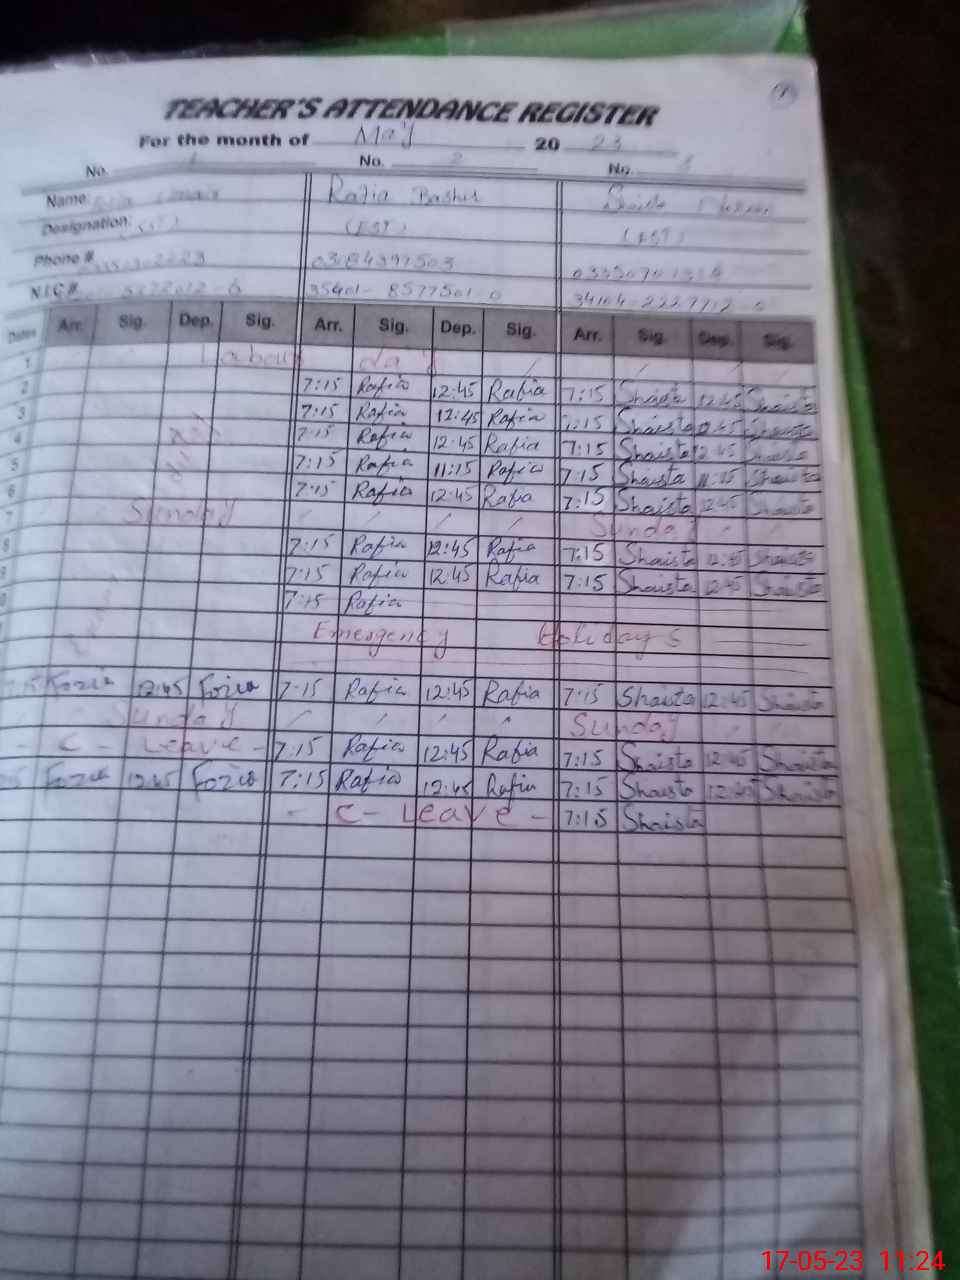 1
TEACHER'S ATTENDANCE REGISTER
For the month of May 2023
No. 1 No. 2 No. 3
Name: Rafia Bashir
Designation: (EST) (EST)
Phone #
N.I.C # 35401-8577501-0
Dates Arr. Sig. Dep. Sig. Arr. Sig. Dep. Sig. Arr. Sig. Dep. Sig.
1 Labour day
2 7:15 Rafia 12:45 Rafia 7:15 Shaista 12:45 Shaista
3 7:15 Rafia 12:45 Rafia 7:15 Shaista 12:45 Shaista
4 7:15 Rafia 12:45 Rafia 7:15 Shaista 12:45 Shaista
5 7:15 Rafia 11:15 Rafia 7:15 Shaista 11:15 Shaista
6 7:15 Rafia 12:45 Rafia 7:15 Shaista 12:45 Shaista
7 Sunday Sunday
8 7:15 Rafia 12:45 Rafia 7:15 Shaista 12:45 Shaista
9 7:15 Rafia 12:45 Rafia 7:15 Shaista 12:45 Shaista
7:15 Rafia
Emergency Holidays
Fozia 12:45 Fozia 7:15 Rafia 12:45 Rafia 7:15 Shaista 12:45 Shaista
Sunday Sunday
- C - Leave - 7:15 Rafia 12:45 Rafia 7:15 Shaista 12:45 Shaista
Fozia 12:45 Fozia 7:15 Rafia 12:45 Rafia 7:15 Shaista 12:45 Shaista
- C - Leave - 7:15 Shaista
17-05-23 11:24